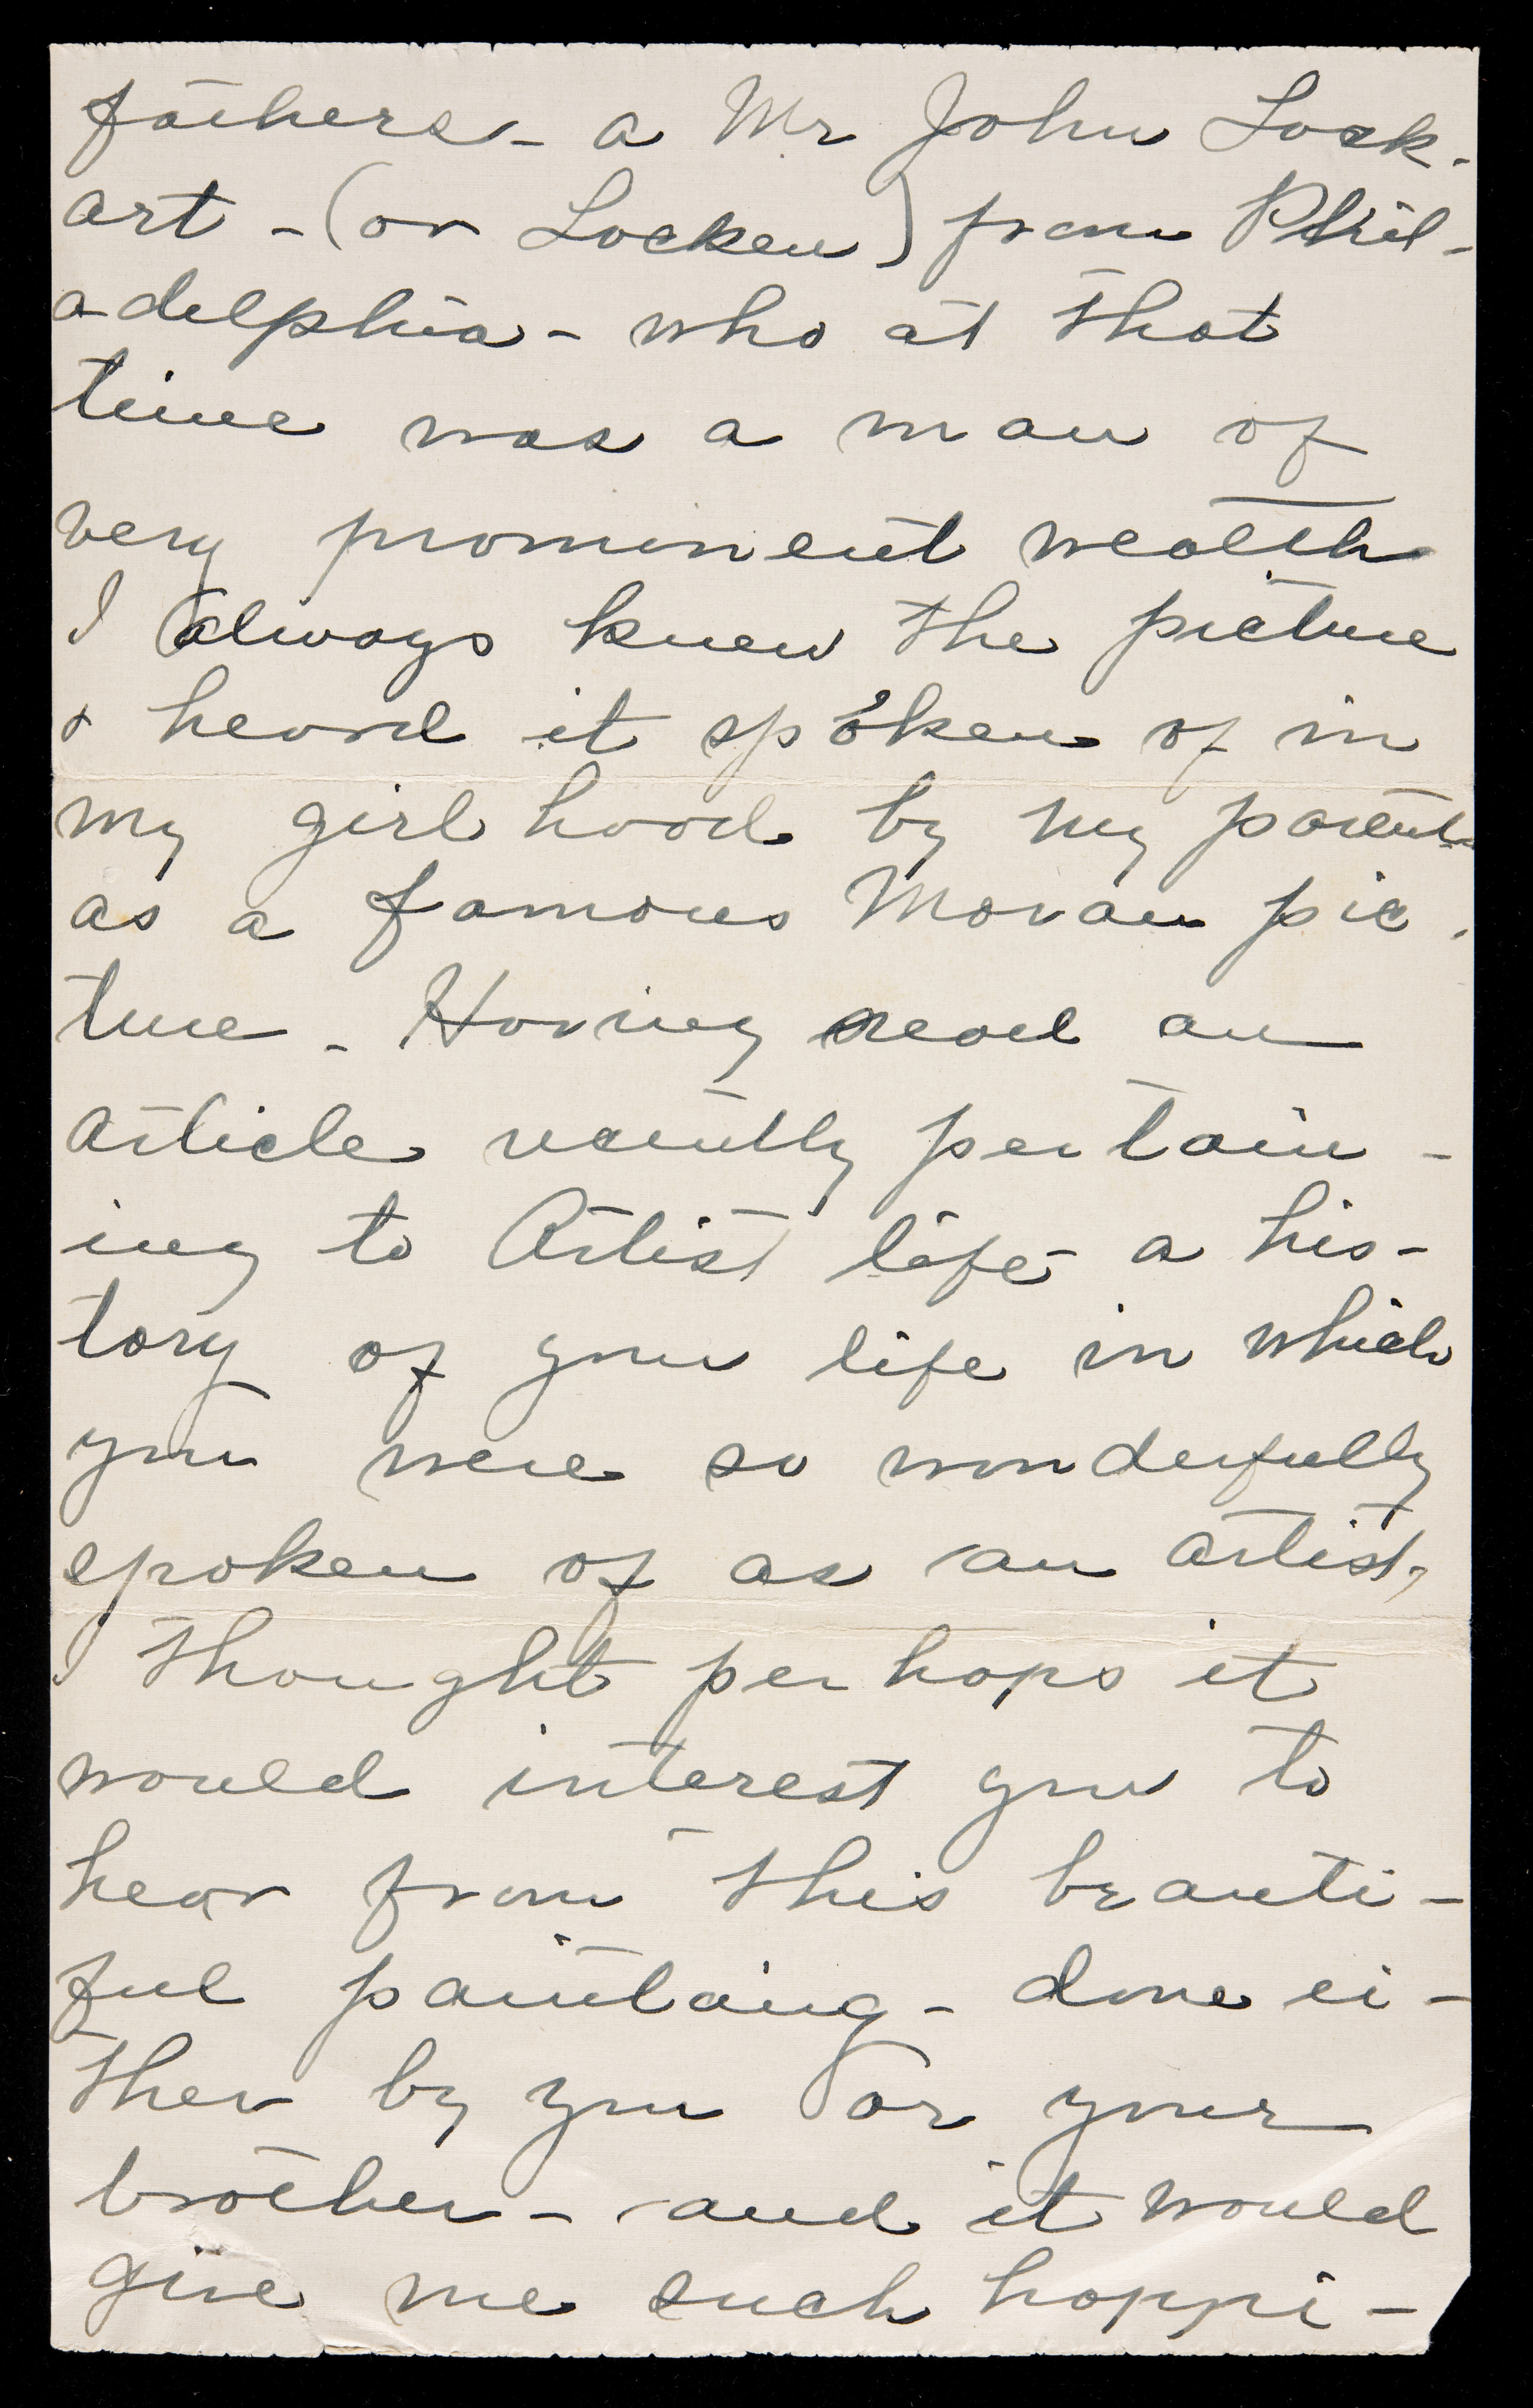 fathers - a Mr John Lock-
art - (or Locken) from Phil-
adelphia - who at that
time was a man of
very prominent wealth
I always knew the picture
& heard it spoken of in
my girlhood by my parents
as a famous Moran pic-
ture - Having read an
article recently pertain-
ing to Artist life - a his-
tory of your life in which
you were so wonderfully
spoken of as an artist,
I thought perhaps it
would interest you to
hear from this beauti-
ful painting - done ei-
ther by you or your
brother - and it would
give me such happi-